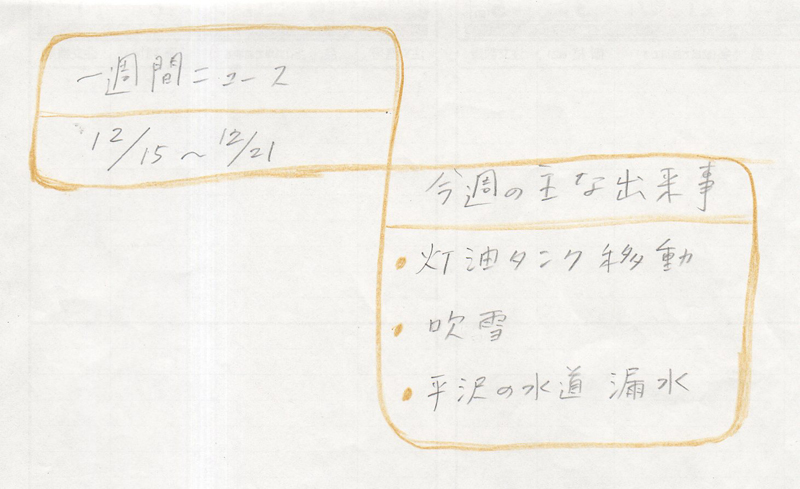 一週間ニュース
12/15〜12/21
今週の主な出来事
• 灯油タンク移動
• 吹雪
• 平沢の水道 漏水